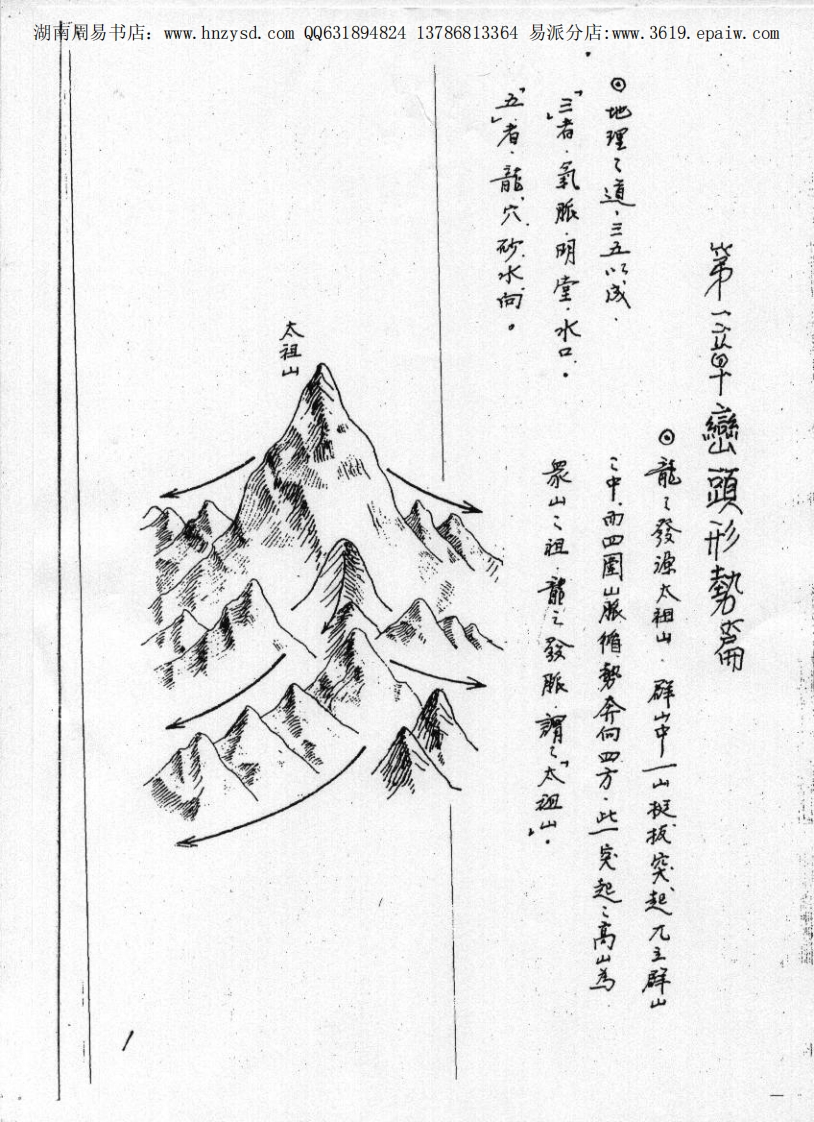 湖南周易书店：www.hnzysd.com QQ631894824 13786813364 易派分店:www.3619.epaiw.com
第一章巒頭形勢篇
◎地理之道．三五以成．
「三」者．氣脈．明堂．水口．
「五」者．龍、穴、砂、水、向。
◎龍之發源太祖山．群山中一山挺拔突起兀立群山
之中．而四圍山脈循勢奔向四方．此一突起之高山為
眾山之祖．龍之發脈．謂之「太祖山」。
太祖山
1